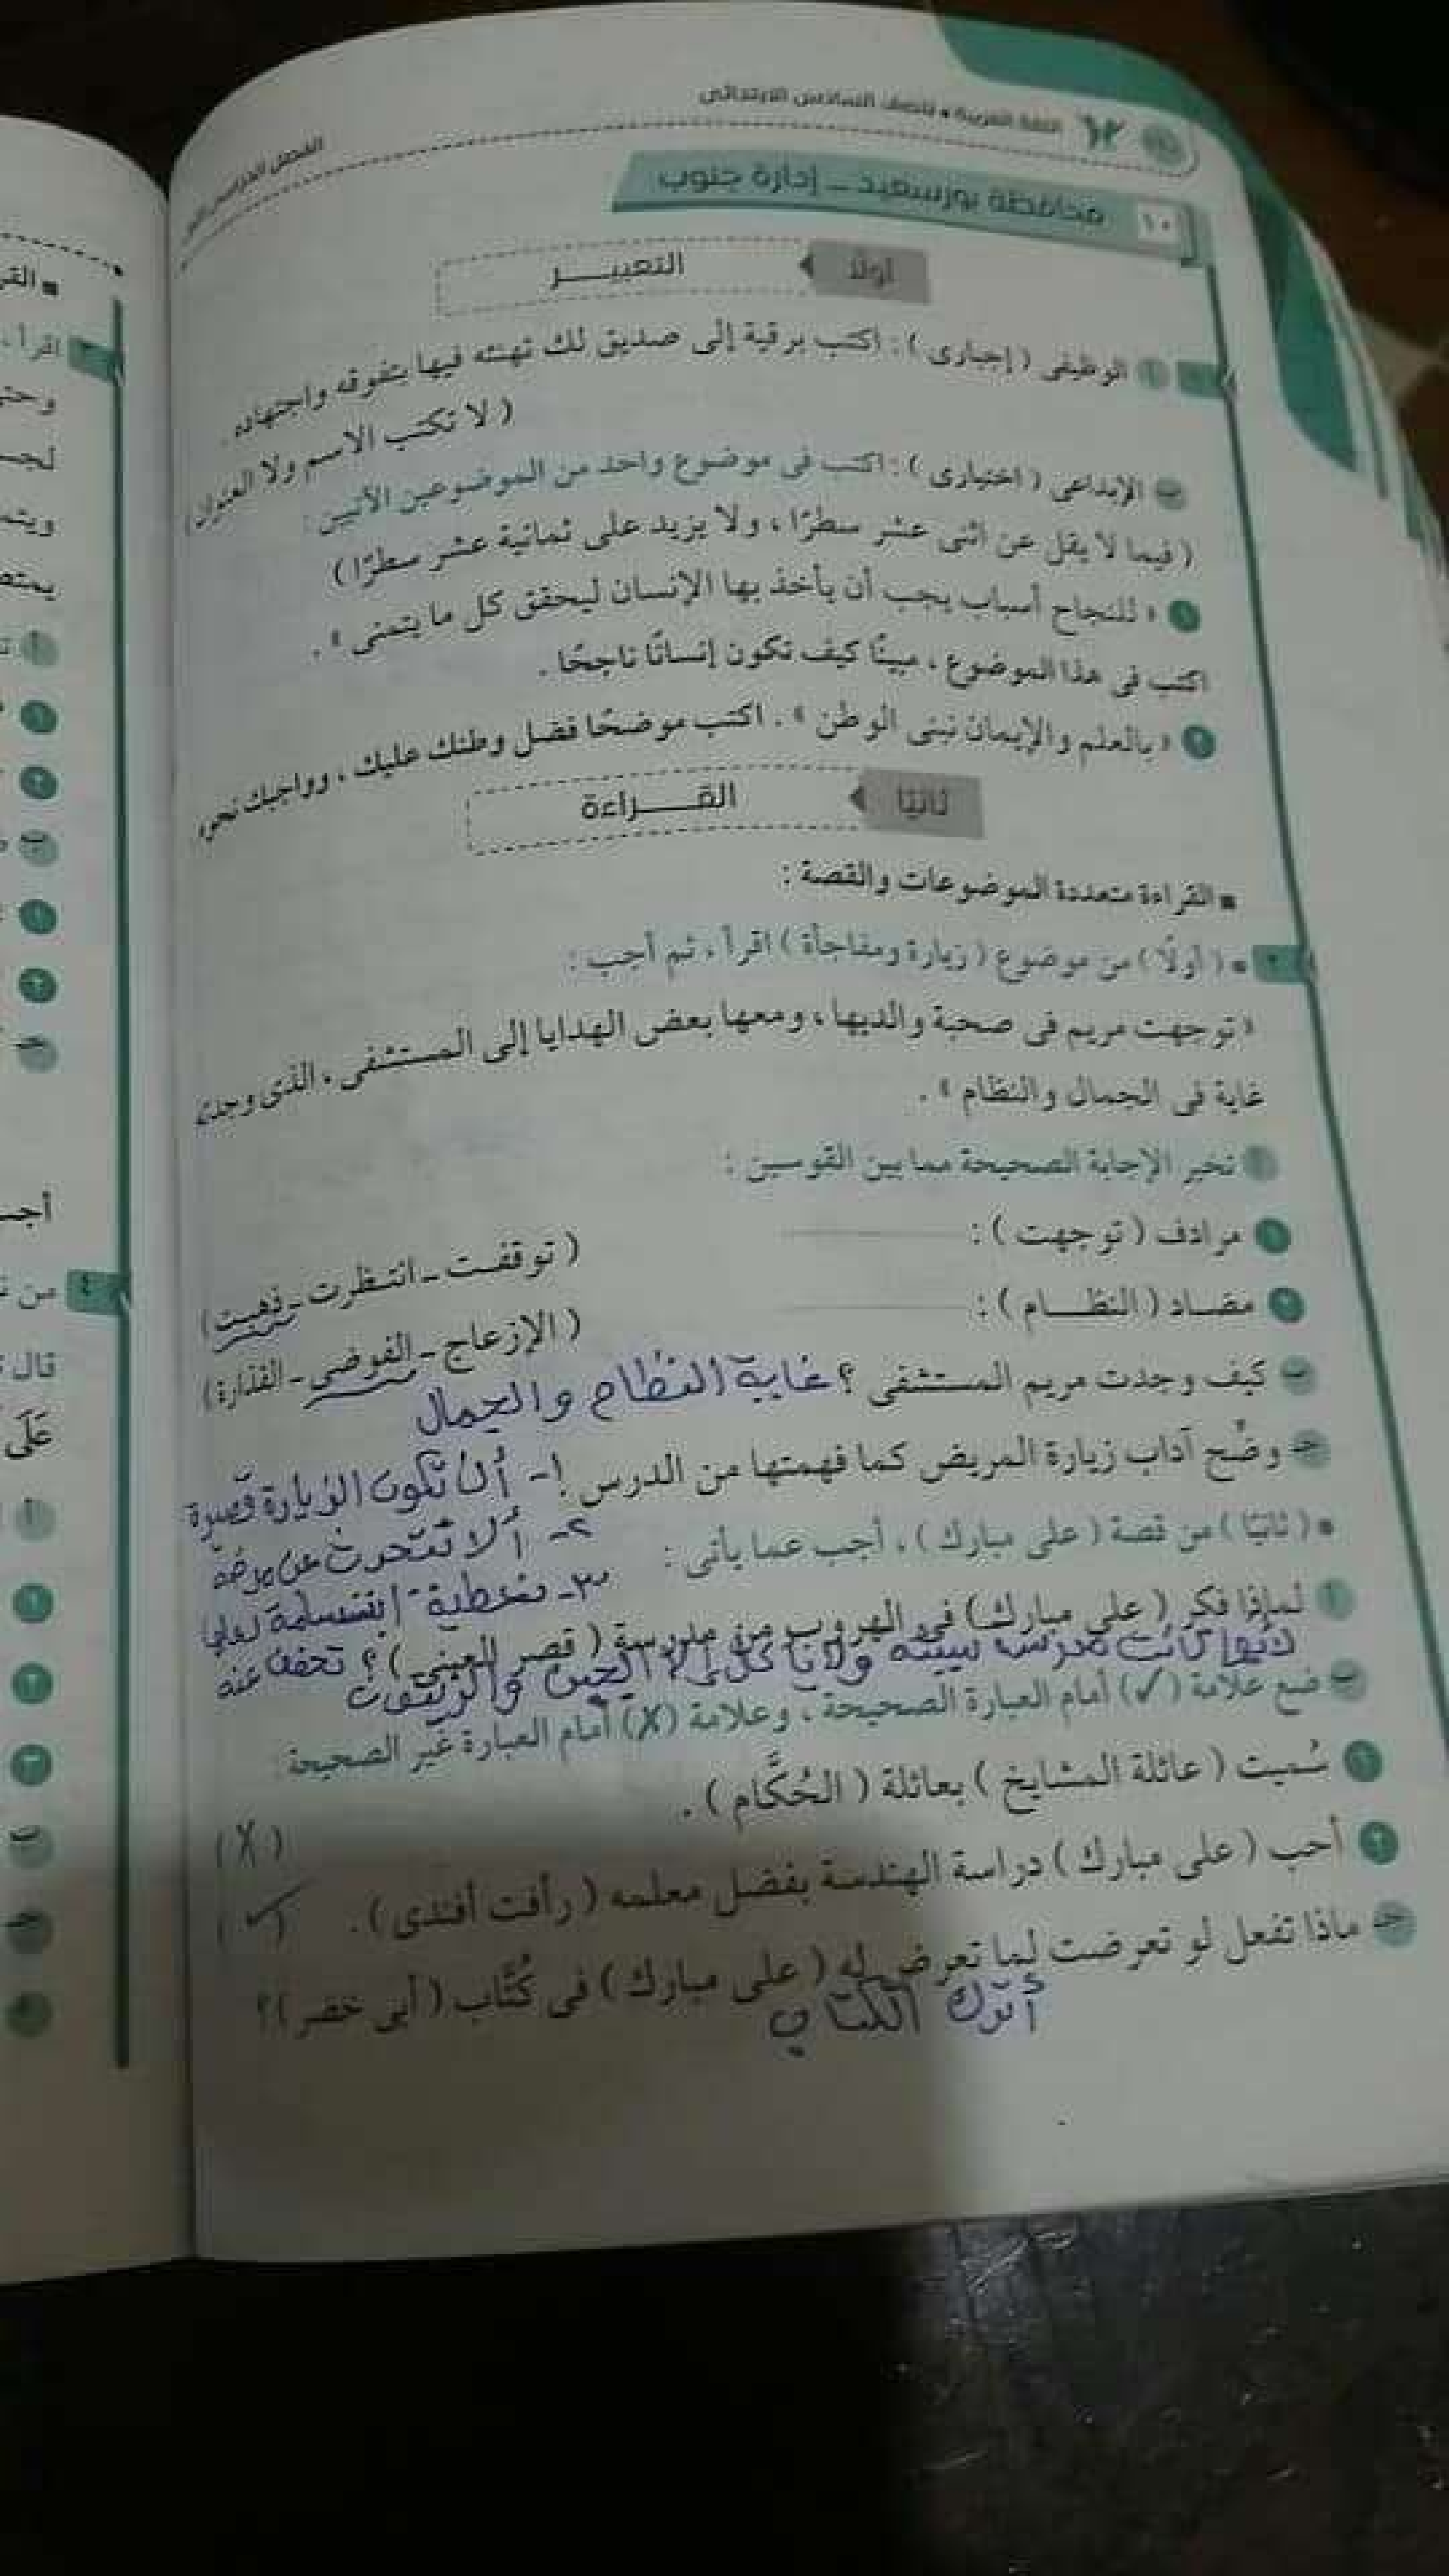 اللغة العربية • للصف السادس الابتدائى
١٠ محافظة بورسعيد – إدارة جنوب
أولا التعبيـــر
أ الوظيفى ( إجبارى ) : اكتب برقية إلى صديق لك تهنئه فيها بتفوقه واجتهاده .
( لا تكتب الاسم ولا العنوان )
ب الإبداعى ( اختيارى ) : اكتب فى موضوع واحد من الموضوعين الآتيين :
( فيما لا يقل عن اثنى عشر سطرًا ، ولا يزيد على ثمانية عشر سطرًا )
١ « للنجاح أسباب يجب أن يأخذ بها الإنسان ليحقق كل ما يتمنى » .
اكتب فى هذا الموضوع ، مبينًا كيف تكون إنسانًا ناجحًا .
٢ « بالعلم والإيمان نبنى الوطن » . اكتب موضحًا فضل وطنك عليك ، وواجبك نحوه
ثانيًا القــراءة
■ القراءة متعددة الموضوعات والقصة :
٢ ■ ( أولًا ) من موضوع ( زيارة ومفاجأة ) اقرأ ، ثم أجب :
« توجهت مريم فى صحبة والديها ، ومعها بعض الهدايا إلى المستشفى ، الذى وجدته
غاية فى الجمال والنظام » .
أ تخير الإجابة الصحيحة مما بين القوسين :
١ مرادف ( توجهت ) : ( توقفت – انتظرت – ذهبت )
٢ مضاد ( النظـــام ) : ( الإزعاج – الفوضى – القذارة )
ب كيف وجدت مريم المستشفى ؟ غاية النظام والجمال
جـ وضِّح آداب زيارة المريض كما فهمتها من الدرس ١- أن تكون الزيارة قصيرة
٢- ألا نتحدث عن مرضه
■ ( ثانيًا ) من قصة ( على مبارك ) ، أجب عما يأتى :
٣- نعطيه ابتسامة
تخفف عنه
أ لماذا فكر ( على مبارك ) فى الهروب من مدرسة ( قصر العينى ) ؟
لأنها كانت مدرسة سيئة ولا يأكل إلا الجبن والزيتون
ب ضع علامة (✓) أمام العبارة الصحيحة ، وعلامة (X) أمام العبارة غير الصحيحة :
١ سُميت ( عائلة المشايخ ) بعائلة ( الحُكَّام ) . ( X )
٢ أحب ( على مبارك ) دراسة الهندسة بفضل معلمه ( رأفت أفندى ) . ( ✓ )
جـ ماذا تفعل لو تعرضت لما تعرض له ( على مبارك ) فى كُتَّاب ( أبى خضر ) ؟
أترك الكتاب